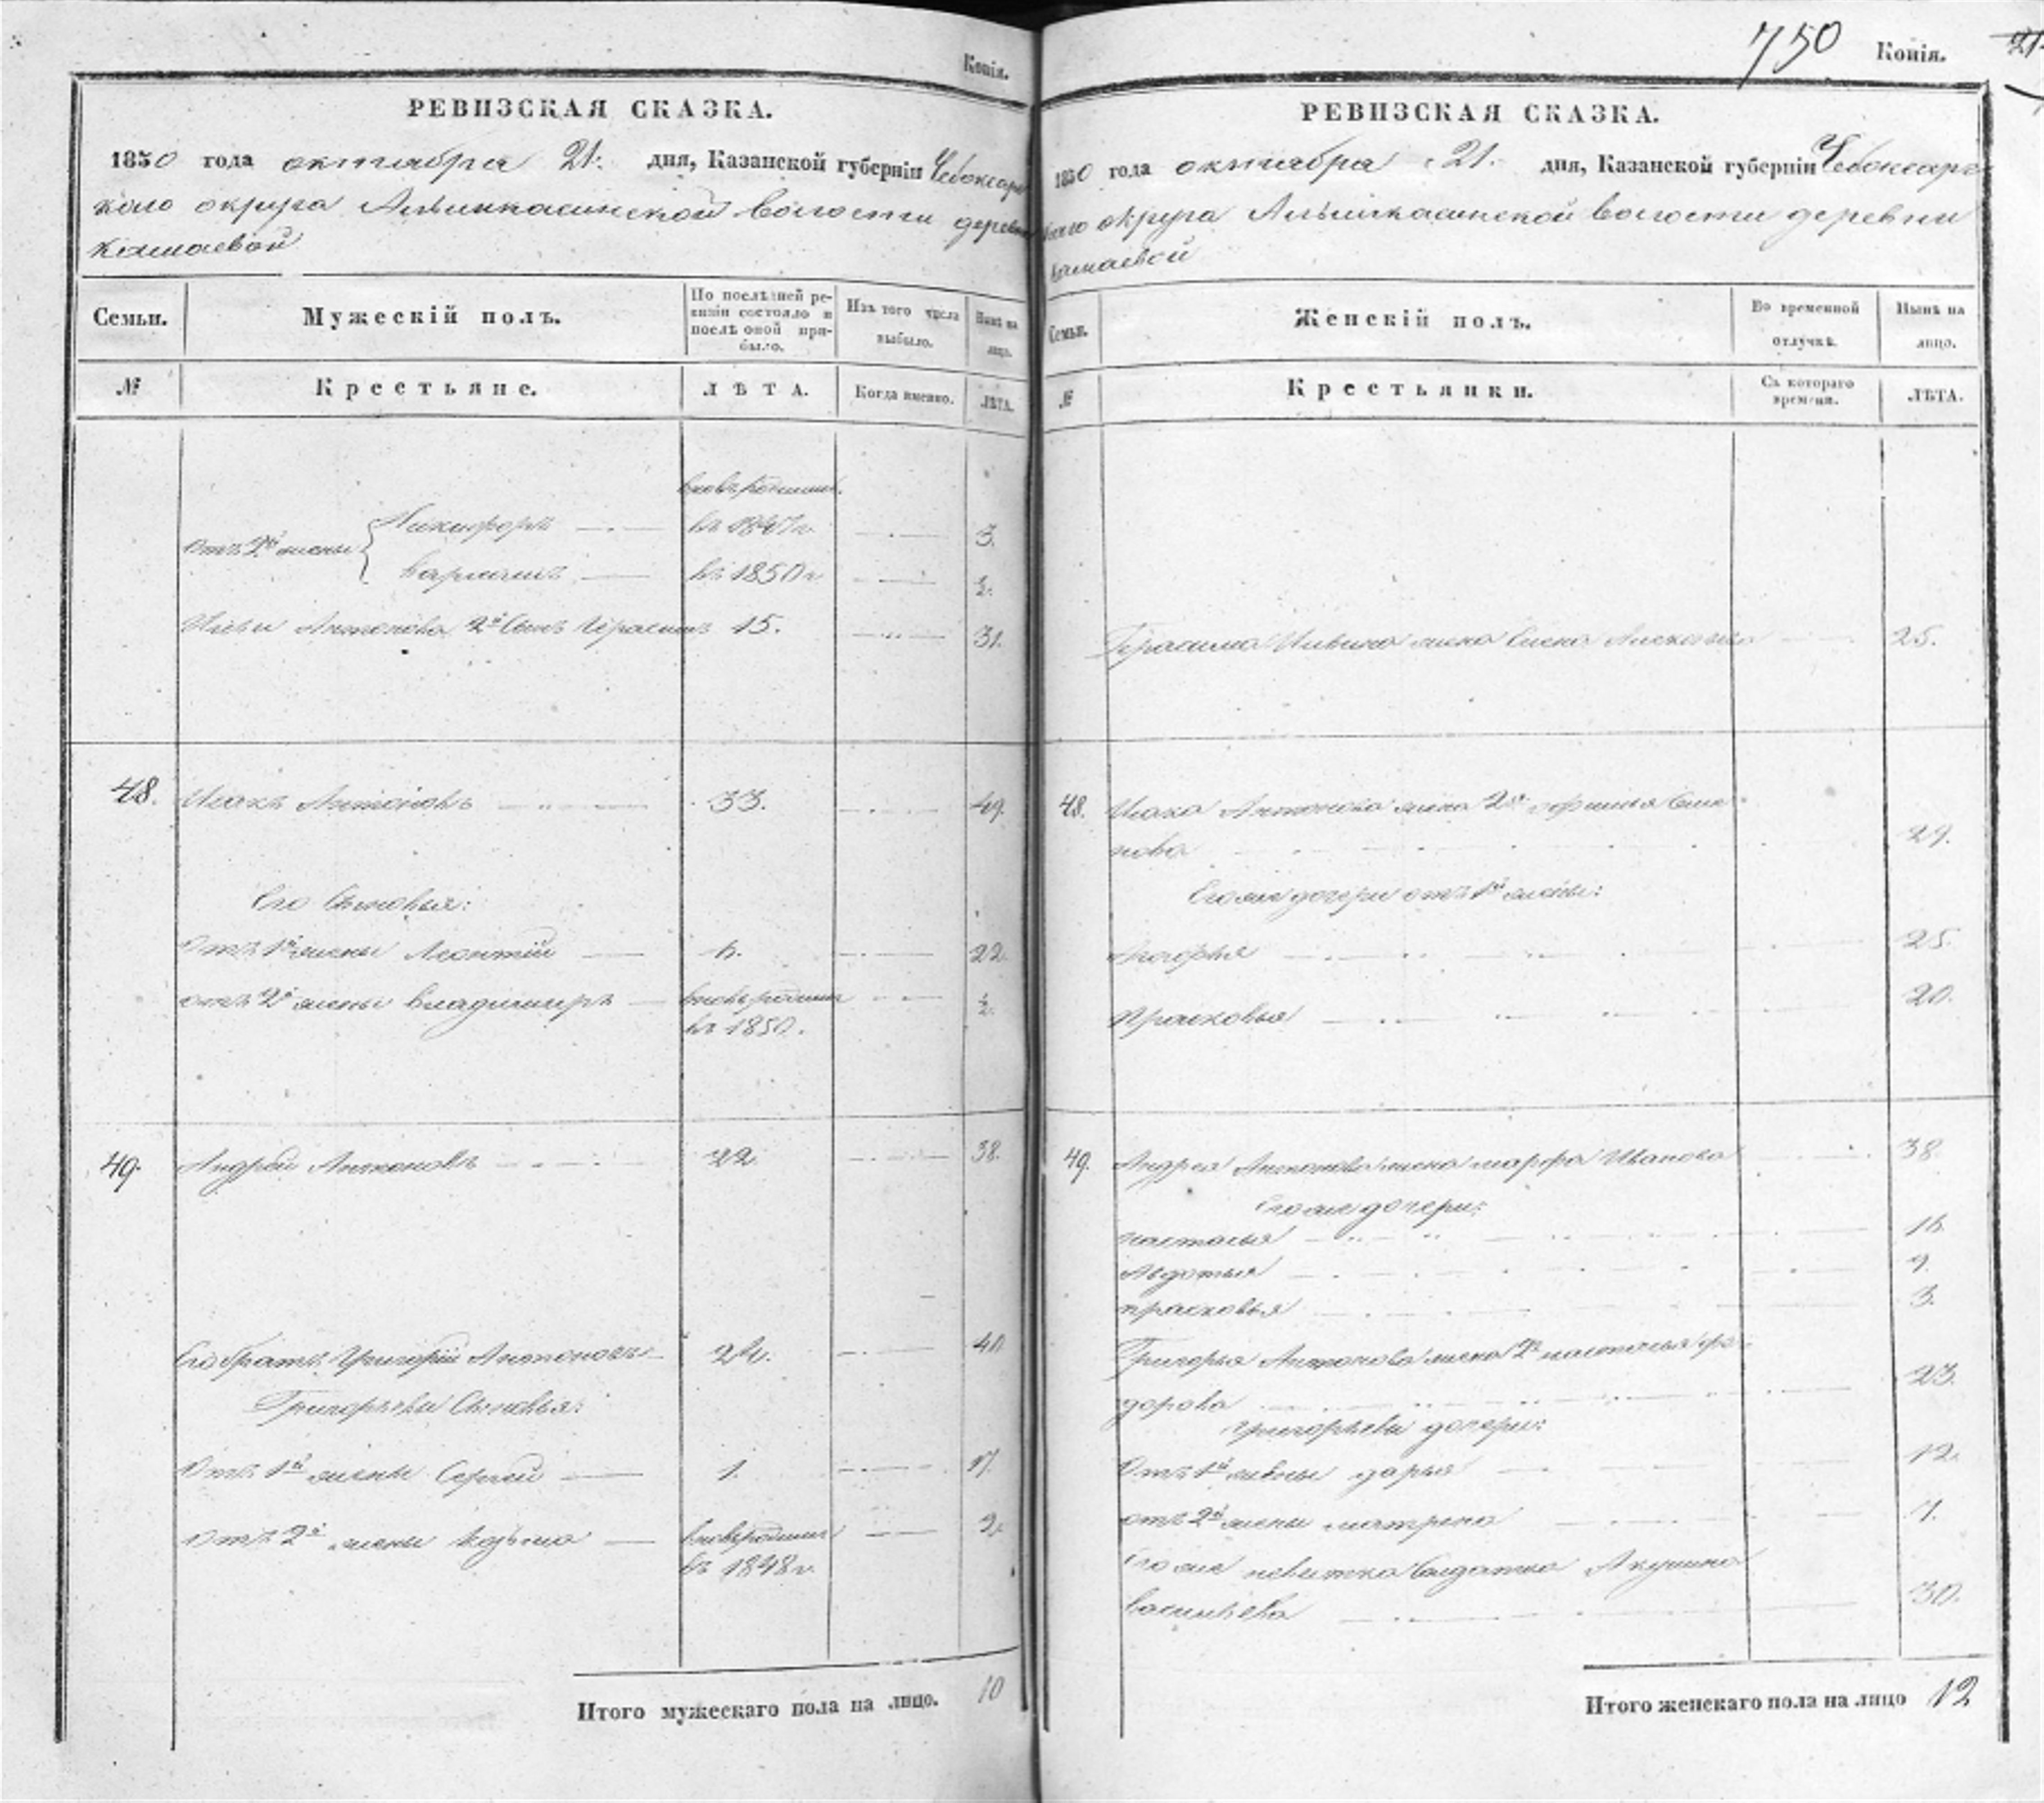 Копія.
РЕВИЗСКАЯ СКАЗКА.
1850 года октября 21. дня, Казанской губерніи Чебоксарс
каго округа Алымкасинской волости деревни
Камаевой
Семьи. Мужескій полъ. По послѣдней ре-
визіи состояло и
послѣ оной при-
было. Изъ того числа
выбыло. Нынѣ на
лицо.
№ Крестьяне. ЛѢТА. Когда именно. ЛѢТА.
вновьрожден.
Отъ 2й жены Никифоръ въ 1847г. 3.
въ 1850г. ½.
Антонова 2й Сынъ Герасимъ 15. 31.
48. Исакъ Антоновъ 33. 49.
Его Сыновья:
Отъ 1й жены Леонтій 6. 22.
отъ 2й жены Владимиръ вновьрожден ½.
въ 1850.
49. Андрей Антоновъ 22. 38.
Его братъ Григорій Антоновъ 24. 40.
Григорьевы Сыновья:
Отъ 1й жены Сергей 1. 17.
Отъ 2й жены Козьма вновьрожден 2.
въ 1848г.
Итого мужескаго пола на лицо. 10
750 Копія. 21
РЕВИЗСКАЯ СКАЗКА.
1850 года октября 21. дня, Казанской губерніи Чебоксарс
каго округа Алымкасинской волости деревни
Камаевой
Семьи. Женскій полъ. Во временной
отлучкѣ. Нынѣ на
лицо.
№ Крестьянки. Съ котораго
времени. ЛѢТА.
Герасима жена Елена 25.
48. Исака Антонова жена 2я Семе
нова 29.
Его же дочери отъ 1й жены:
25.
Прасковья 20.
49. Андрея Антонова жена марфа Иванова 38.
Его же дочери:
настасья 16.
Авдотья 9.
прасковья 3.
Григорья Антонова жена 2я настасья фе-
дорова 23.
григорьевы дочери:
Отъ 1й жены дарья 12.
отъ 2й жены матрена 1.
Его же невестка Солдатка Акулина
васильева 30.
Итого женскаго пола на лицо 12